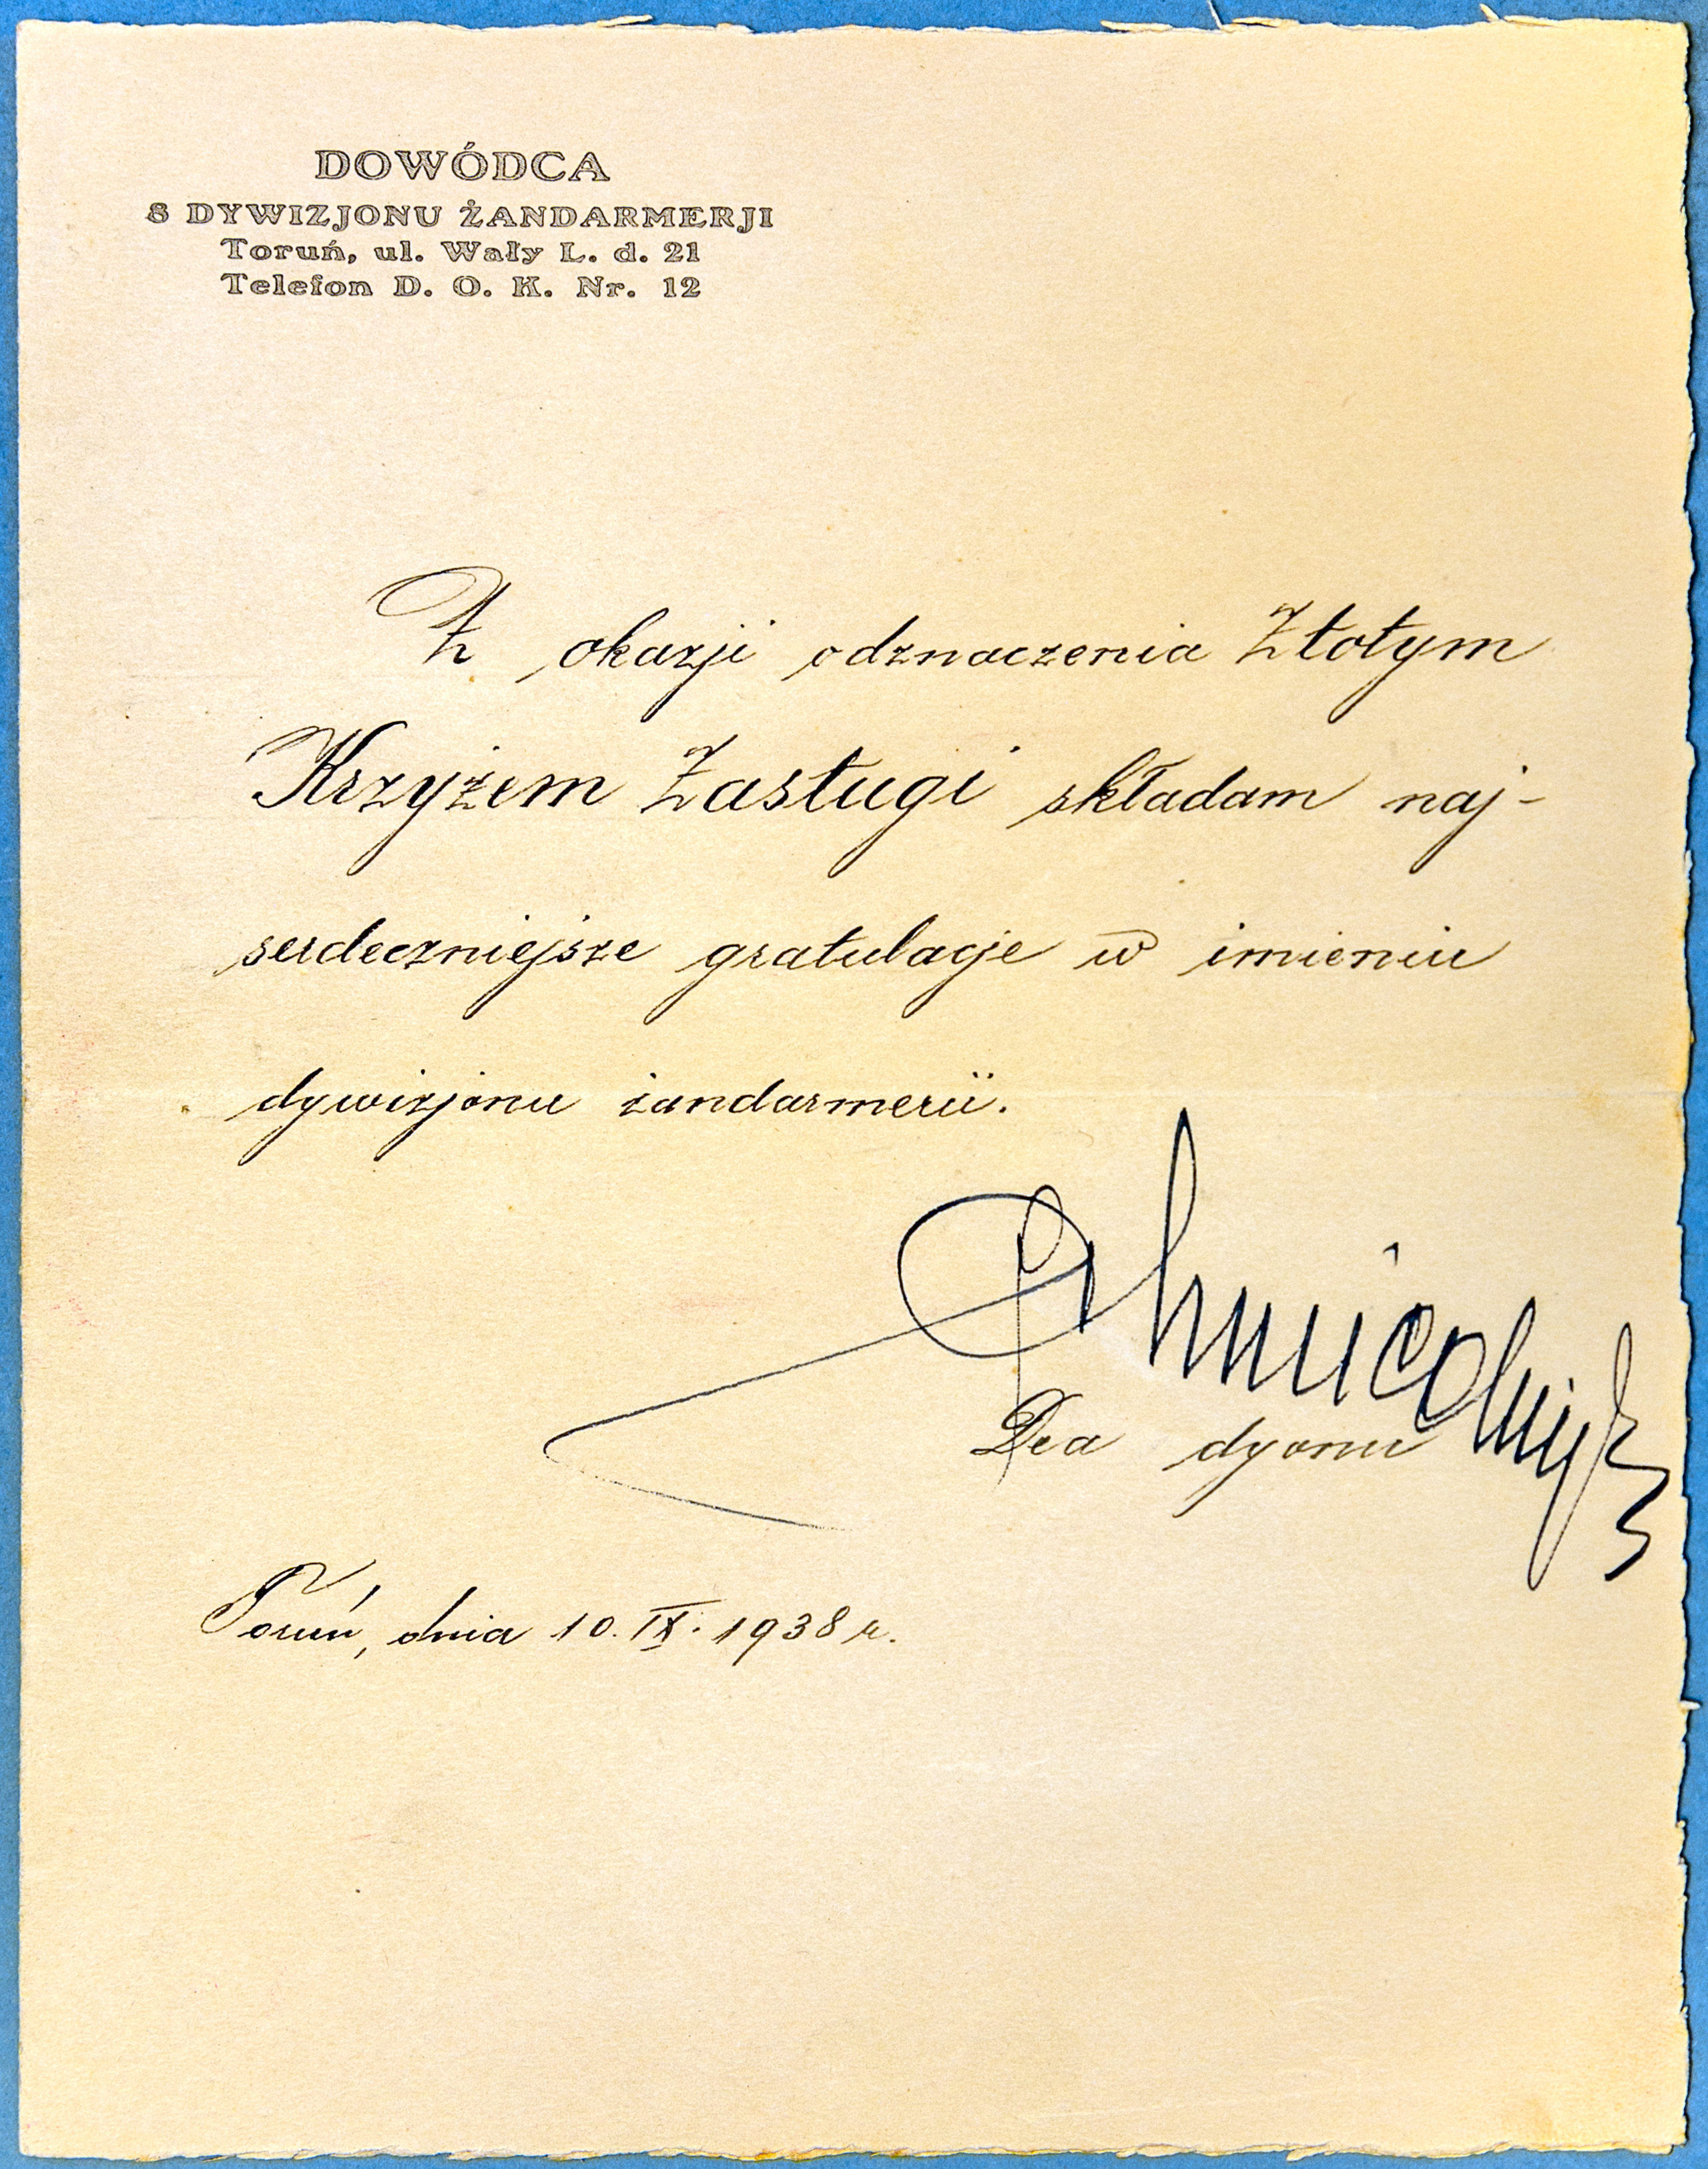 DOWÓDCA
8 DYWIZJONU ŻANDARMERJI
Toruń, ul. Wały L. d. 21
Telefon D. O. K. Nr. 12
Z okazji odznaczenia Złotym
Krzyżem Zasługi składam naj-
serdeczniejsze gratulacje w imieniu
dywizjonu żandarmerii.
Dca dyonu
Toruń, dnia 10. IX. 1938 r.